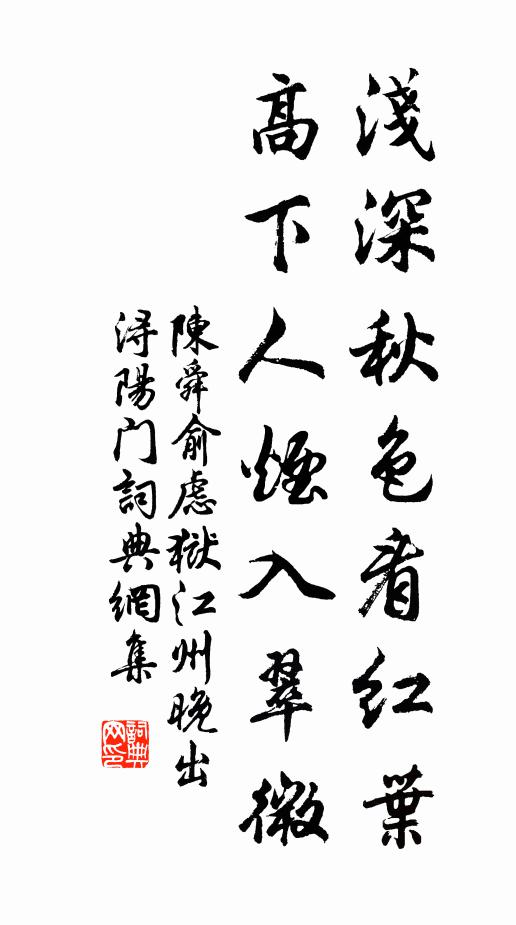 淺深秋色看紅葉
高下人煙入翠微
陳舜俞慮獄江州晚出
潯陽門詞典網集
詞典网印